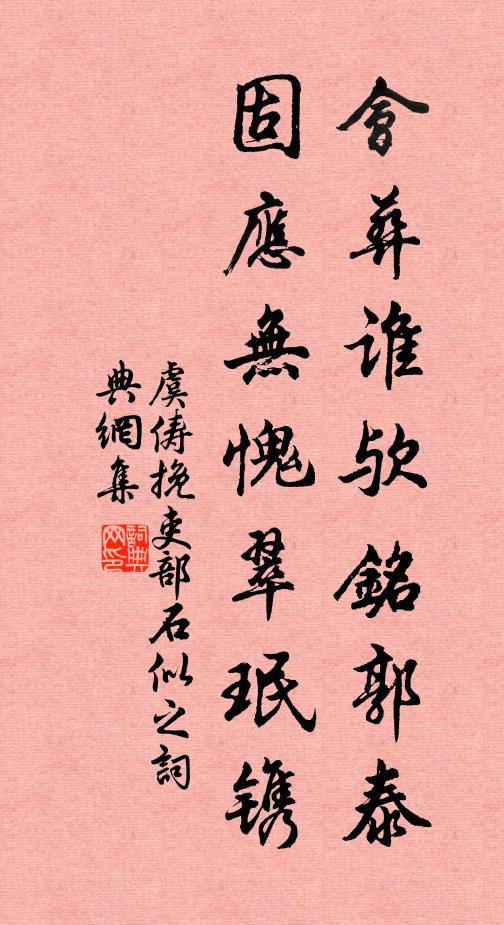 會葬誰欤銘郭泰
固應無愧翠珉镌
虞俦挽吏部石似之詞
典網集
詞典网印